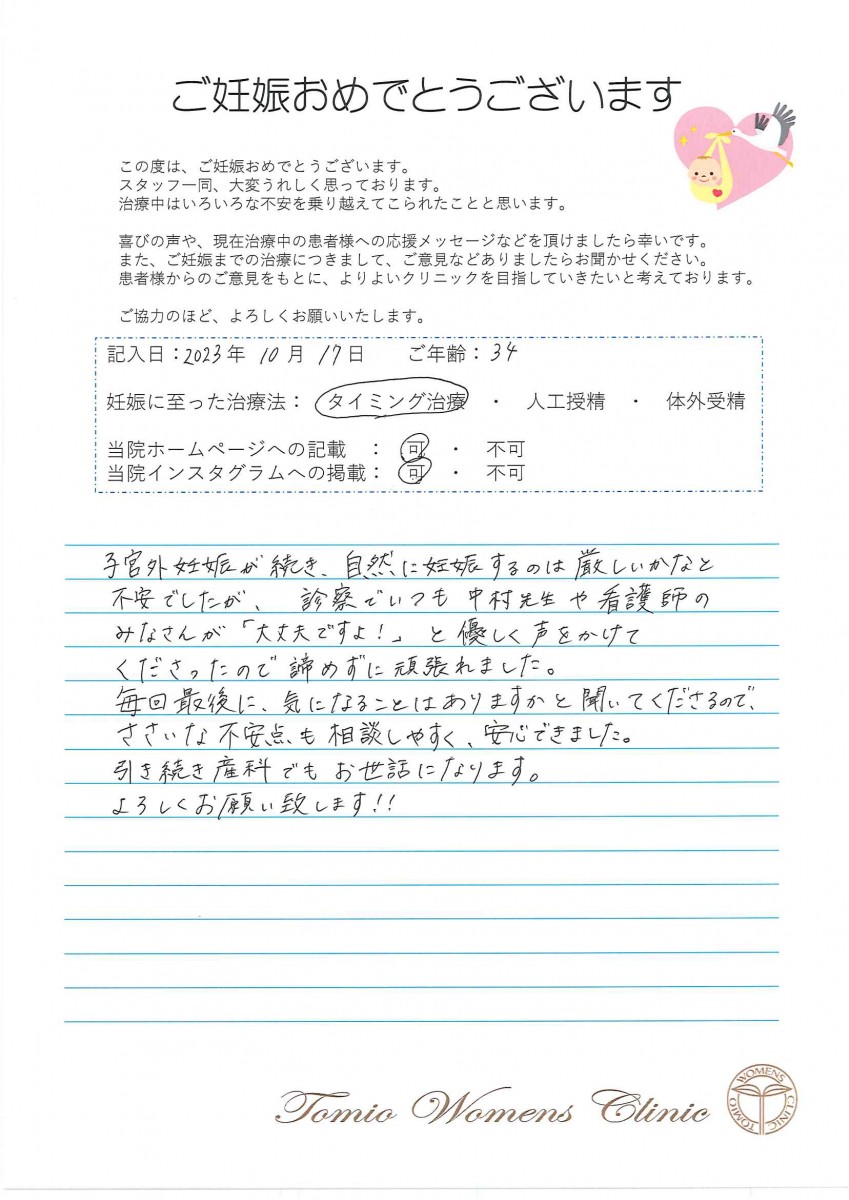 ご妊娠おめでとうございます
この度は、ご妊娠おめでとうございます。
スタッフ一同、大変うれしく思っております。
治療中はいろいろな不安を乗り越えてこられたことと思います。
喜びの声や、現在治療中の患者様への応援メッセージなどを頂けましたら幸いです。
また、ご妊娠までの治療につきまして、ご意見などありましたらお聞かせください。
患者様からのご意見をもとに、よりよいクリニックを目指していきたいと考えております。
ご協力のほど、よろしくお願いいたします。
記入日：2023年 10月 17日 ご年齢：34
妊娠に至った治療法： タイミング治療 ・ 人工授精 ・ 体外受精
当院ホームページへの記載 ： 可 ・ 不可
当院インスタグラムへの掲載： 可 ・ 不可
子宮外妊娠が続き、自然に妊娠するのは厳しいかなと
不安でしたが、診察でいつも中村先生や看護師の
みなさんが「大丈夫ですよ！」と優しく声をかけて
くださったので諦めずに頑張れました。
毎回最後に、気になることはありますかと聞いてくださるので、
ささいな不安点も相談しやすく、安心できました。
引き続き産科でもお世話になります。
よろしくお願い致します!!
Tomio Womens Clinic
TOMIO WOMENS CLINIC